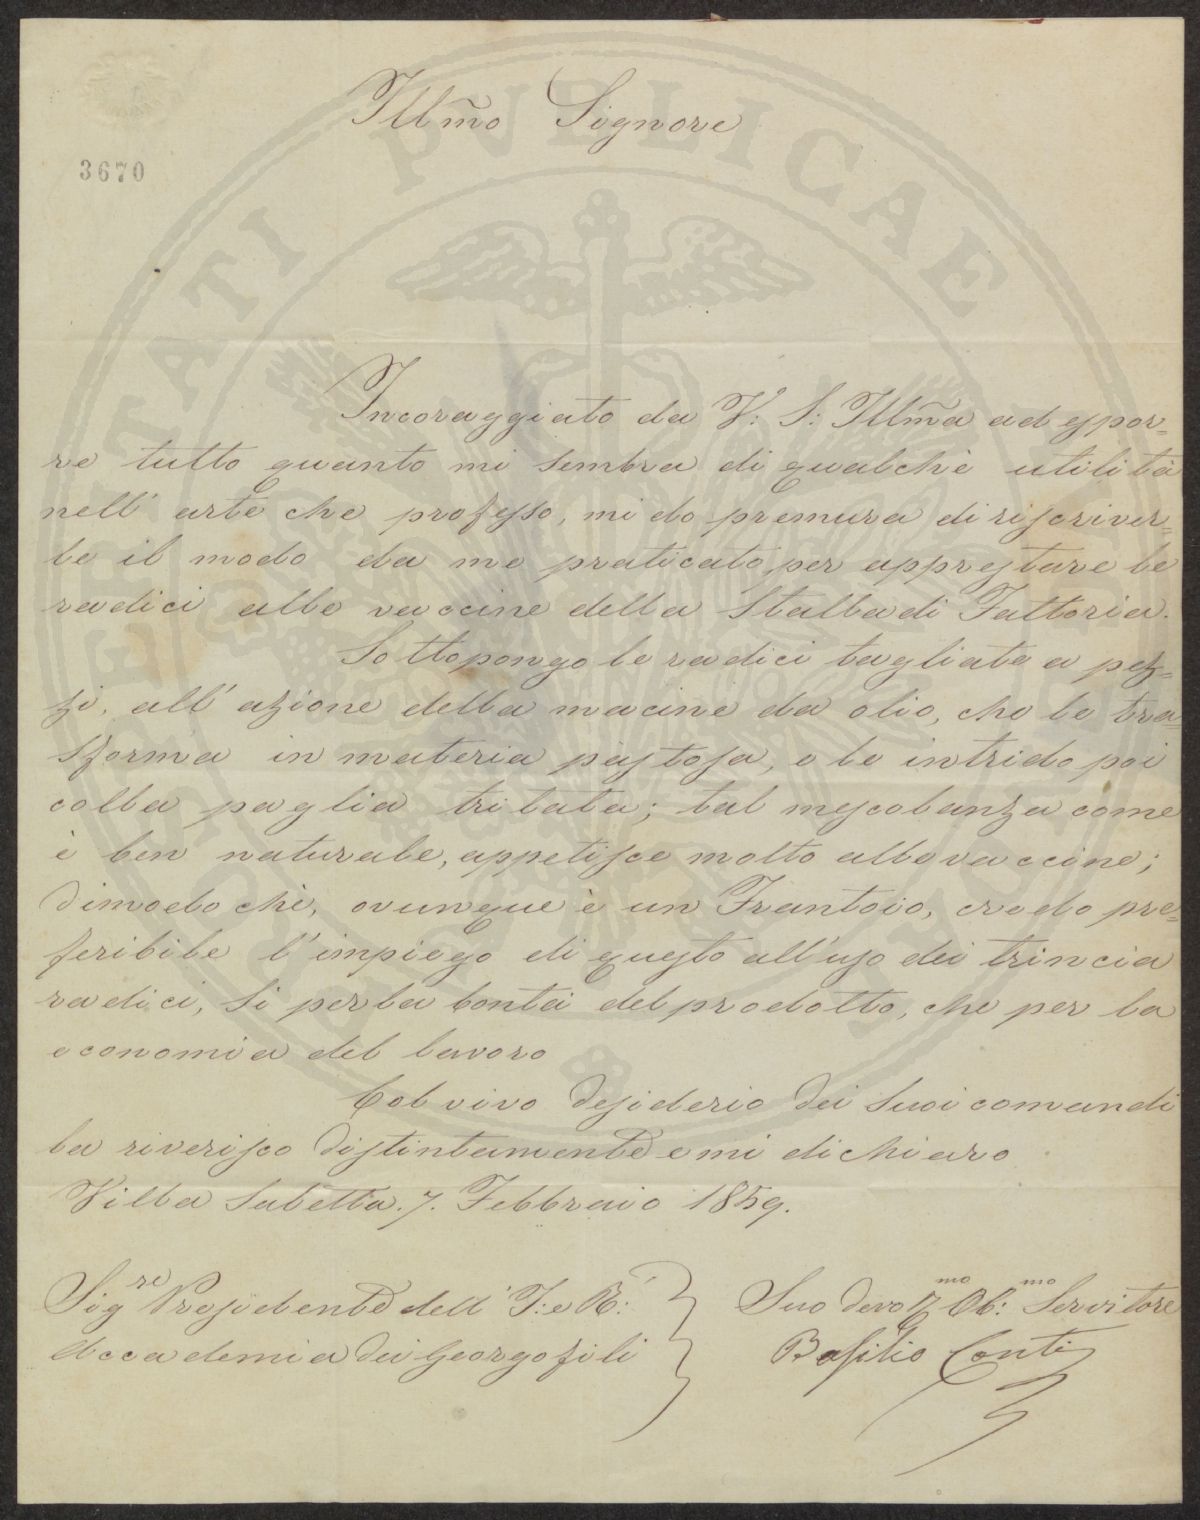 PROSPERITATI PVBLICAE AVGENDAE
3670
Illm̃o Signore
Incoraggiato da V: S: Illm̃a ad espor=
re tutto quanto mi sembra di qualchè utilità
nell' arte che professo, mi do premura di riscriver=
le il modo da me praticato, per apprestare le
radici alle vaccine della Stalla di Fattoria.
Sottopongo le radici tagliate a pez=
zi, all' azione della macine da olio, che le tra=
sforma in materia pastosa, e le intrido poi
colla paglia tritata; tal mescolanza come
è ben naturale, appetisce molto alle vaccine;
dimodochè, ovunque è un Frantoio, credo pre=
feribile l'impiego di questo all'uso dei trincia
radici, sì per la bontà del prodotto, che per la
economia del lavoro
Col vivo desiderio dei suoi comandi
la riverisco distintamente e mi dichiaro
Villa Saletta. 7. Febbraio 1859.
Sig.re Presidente dell' I: e R:
Accademia dei Georgofili
Suo devo mo Ob: mo Servitore
Basilio Conti